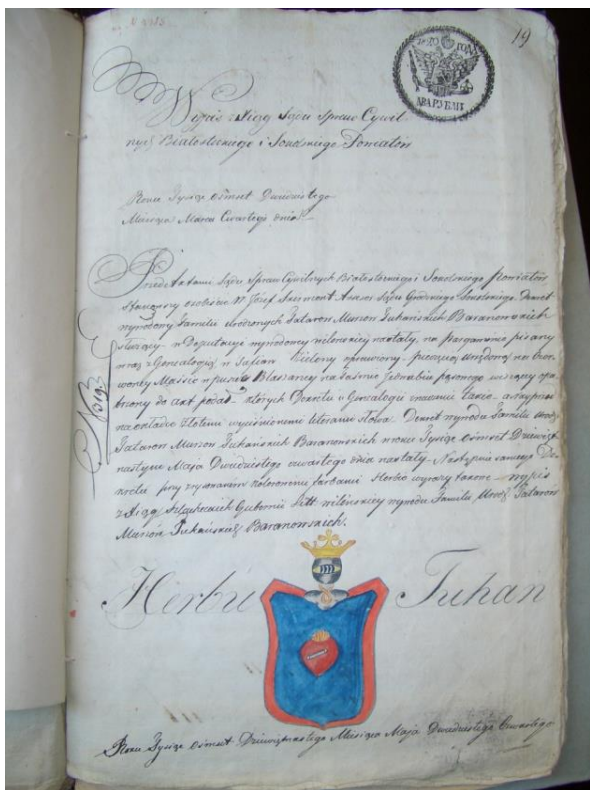 19
1820 ГОДА
ДВА РУБЛИ
Wypis z Xiąg Sądu Spraw Cywil-
nych Białostockiego i Sokolskiego Powiatow
Roku Tysiąc Osmset Dwudziestego
Miesiąca Marca Czwartego dnia
Przed Aktami Sądu Spraw Cywilnych Białostockiego i Sokolskiego Powiatow
Stawaiący osobiscie Józef Sądu Dekret
wywodowy Familii Urodzonych Tatarow Murzow Tuhańskich Baranowskich
służący w Deputacyi wywodowey wilenskiey nastały, na pargaminie pisany
wraz z Genealogią w Safian Zielony oprawny pieczęcią urzędową na
w puszce Blaszaney
do akt podał których Dekretu i Genealogii
na okładce Złotemi wycisnionemi literami słowa: Dekret wywodu Familii Urodz.
Tatarow Murzow Tuhańskich Baranowskich w roku Tysiąc Osmset Dziewięt-
nastym Maja Dwudziestego czwartego dnia nastały. Następnie samego De-
kretu przy kolorowemi farbami Herbu wyrazy takowe: wypis
z Xiąg Szlacheckich Gubernii Litt. wilenskiey wywodu Familii Urodz. Tatarow
Murzow Tuhańskich Baranowskich.
Herbu Tuhan
Roku Tysiąc Osmset Dziewiętnastego Miesiąca Maja Dwudziestego Czwartego